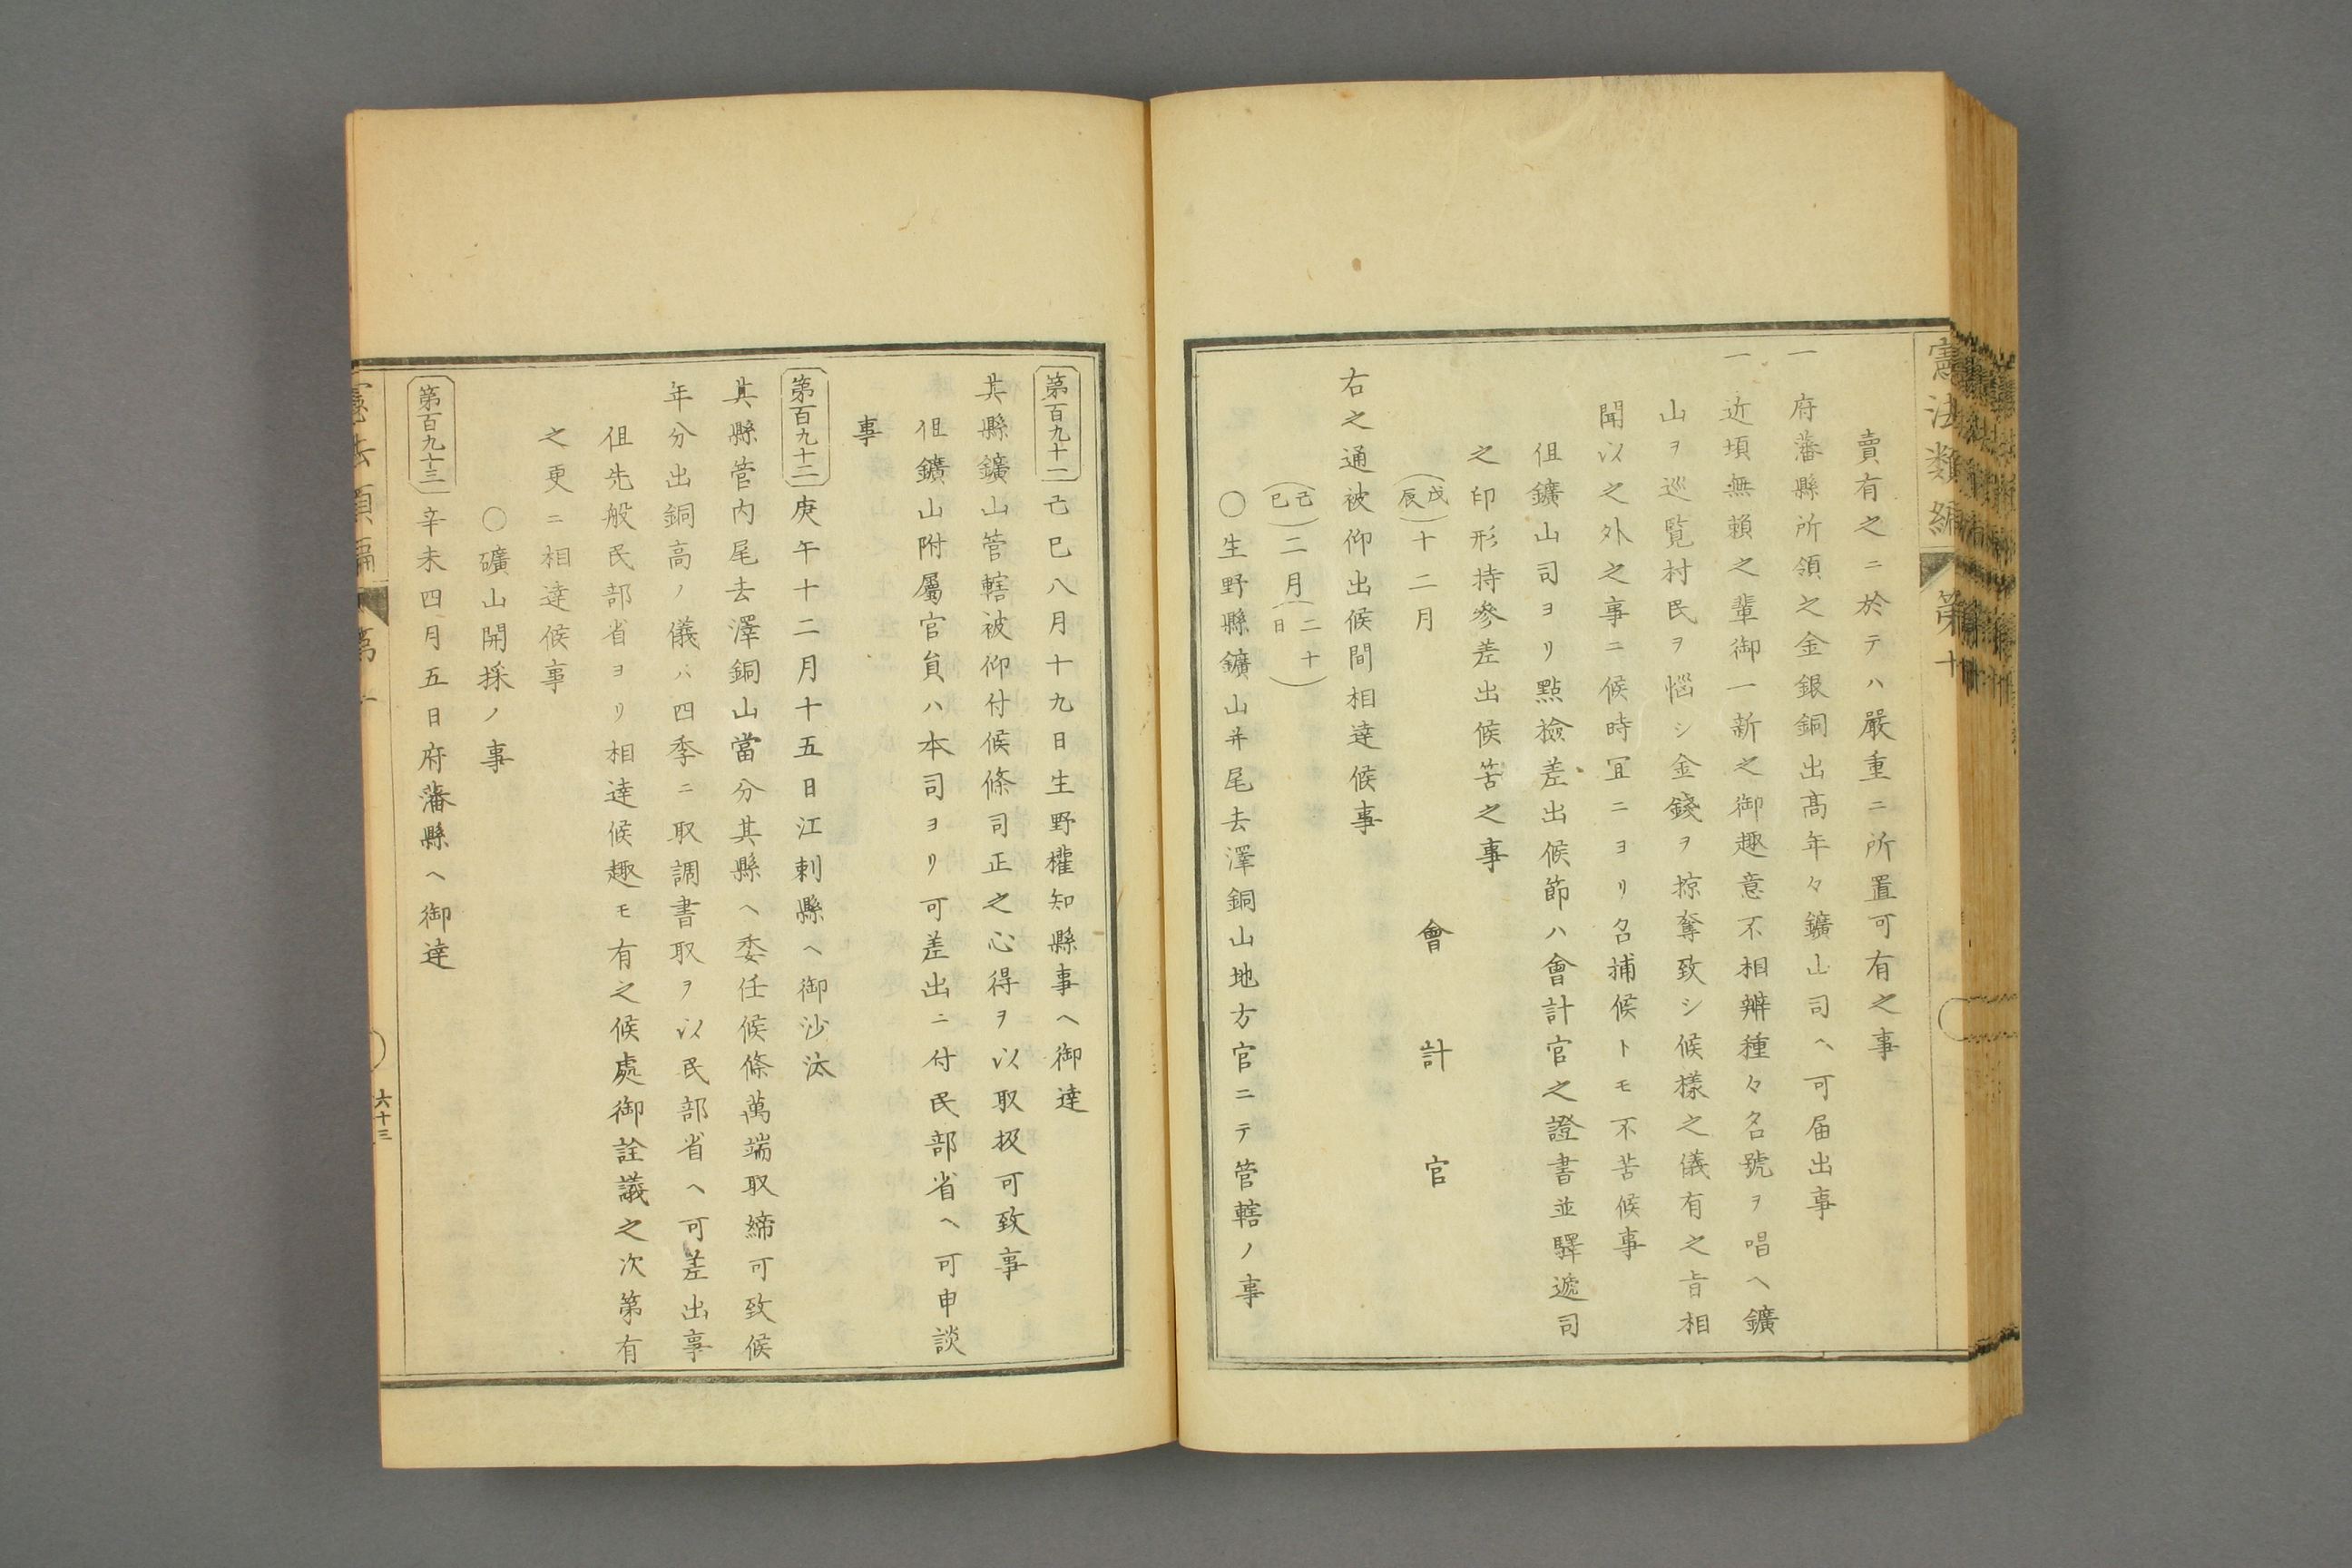 憲法類編　第十
賣有之ニ於テハ嚴重ニ所置可有之事
一　府藩縣所領之金銀銅出髙年々鑛山司ヘ可届出事
一　近頃無賴之輩御一新之御趣意不相辨種々名號ヲ唱ヘ鑛
山ヲ巡覧村民ヲ惱シ金錢ヲ掠奪致シ候樣之儀有之旨相
聞以之外之事ニ候時冝ニヨリ召捕候トモ不苦候事
但鑛山司ヨリ點撿差出候節ハ會計官之證書並驛遞司
之印形持參差出候筈之事
（戊辰）十二月　會計官
右之通被仰出候間相達候事
（己巳）二月（二十日）
〇生野縣鑛山并尾去澤銅山地方官ニテ管轄ノ事
第百九十一　己巳八月十九日生野權知縣事ヘ御達
其縣鑛山管轄被仰付候條司正之心得ヲ以取扱可致事
但鑛山附屬官員ハ本司ヨリ可差出ニ付民部省ヘ可申談
事
第百九十二　庚午十二月十五日江刺縣ヘ御沙汰
其縣管内尾去澤銅山當分其縣ヘ委任候條萬端取締可致候
年分出銅高ノ儀ハ四季ニ取調書取ヲ以民部省ヘ可差出事
但先般民部省ヨリ相達候趣モ有之候處御詮議之次第有
之更ニ相達候事
〇礦山開採ノ事
第百九十三　辛未四月五日府藩縣ヘ御達
六十三